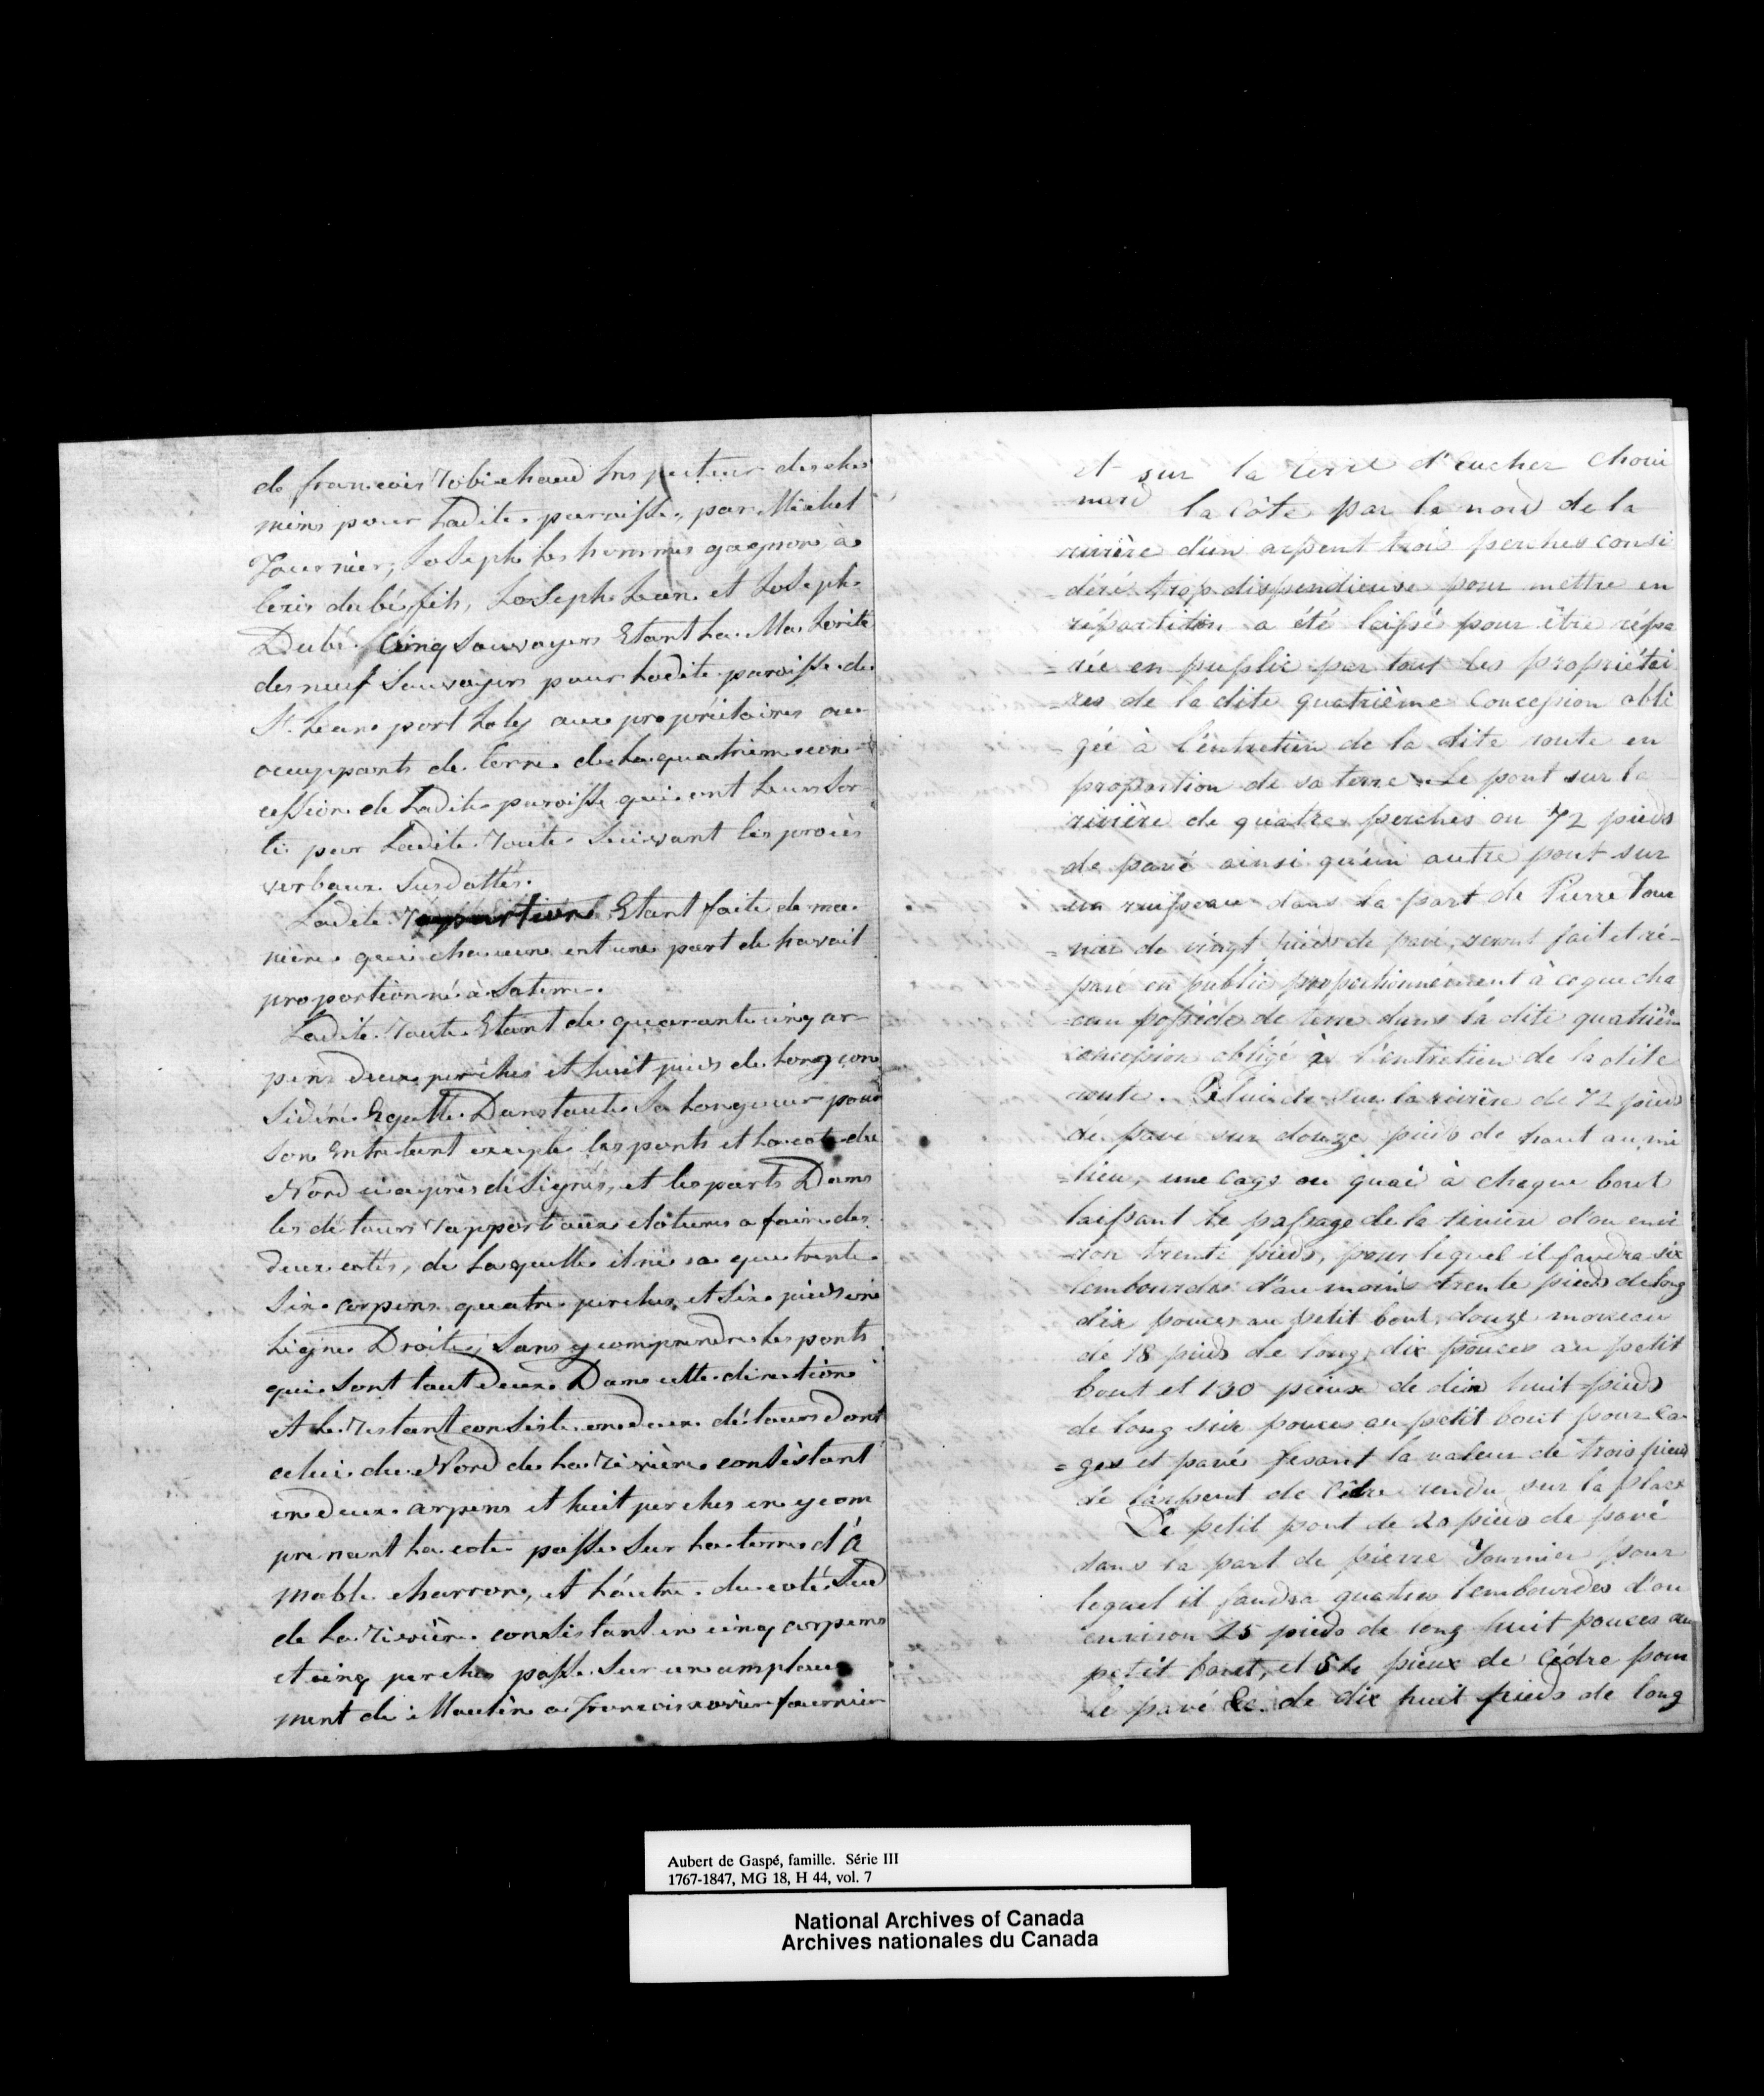 de francois Robichaud Inspecteur des che
mins pour Ladite paroisse, par Michel
Fournier, Joseph Les hommes gagnon, à
lexis dubé fils, Joseph Jean et Joseph
Dubé Cinq Souvoyers Etant La Majorité
des neuf Souvoyers pour Ladite paroisse de
St. Jean port Joly aux propriétaires ou
occuppants de terre de La quatrième con-
cession de Ladite paroisse qui ont Leur Sor-
ti par Ladite Route Suivant les procès
verbaux Susdattés.
Ladite Repartion Etant faite de ma
nière que chacune ont une part de travail
proportionné à Sa terre.
Ladite Route Etant de quarante cinq ar-
pens deux perches et huit pieds de Long con
sidéré Egalle Dans toute Sa Longueur pour
Son Entretent excepté les ponts et La cote du
Nord ci après désignés, et les parts Dans
les détours rapport aux clôtures a faire des
deux cottés, de Laquelle il n'i a que trente
Six arpens quatre perches et Six pieds en
Ligne Droite, Sans y comprendre les ponts
qui Sont tout Deux Dans cette direction
et Le Restant consiste en deux détours dont
celui du Nord de La Rivière consistant
en deux arpens et huit perches en y com
prenant La cote passe Sur La terre d'A
mable charron, et L'autre du coté Sud
de La Rivière consistant en cinq arpens
et cinq perches passe Sur un amplace
ment de Moulin a Francois xavier fournier
et sur la terre d'eucher Choui
nard la Côte par le nord de la
rivière d'un arpent trois perches consi
déré trop dispendieuse pour mettre en
répartition a été laissé pour être répa
=rée en public par tout les propriétai
=res de la dite quatrième Concession obli
=gée à l'entretien de la dite route en
proportion de sa terre. Le pont sur la
rivière de quatre perches ou 72 pieds
de pavé ainsi qu'un autre pont sur
un ruisseau dans la part de Pierre Four
=nier de vingt pieds de pavé, seront fait et ré-
paré en public proportionnément à ce que cha
cun possède de terre dans la dite quatrièm
concession obligé à l'entretien de la dite
route. Celui de sur la rivière de 72 pieds
de pavé sur douze pieds de haut au mi
=lieu, une cage ou quai à chaque bout
laissant le passage de la rivière d'un envi
=ron trente pieds, pour lequel il faudra six
lembourdes d'au moins trente pieds de long
dix pouces au petit bout, douze morceau
de 18 pieds de long dix pouces au petit
bout et 130 pieux de dix huit pieds
de long six pouces au petit bout pour ca
=ges et pavé fesant la valeur de trois pieux
de l'arpent de Cèdre rendu sur la place
Le petit pont de 20 pieds de pavé
dans la part de pierre Fournier pour
lequel il faudra quatres lembourdes d'un
environ 25 pieds de long huit pouces au
petit bout, et pieux de Cédre pour
le pavé &c. de dix huit pieds de long
Aubert de Gaspé, famille. Série III
1767-1847, MG 18, H 44, vol. 7
National Archives of Canada
Archives nationales du Canada